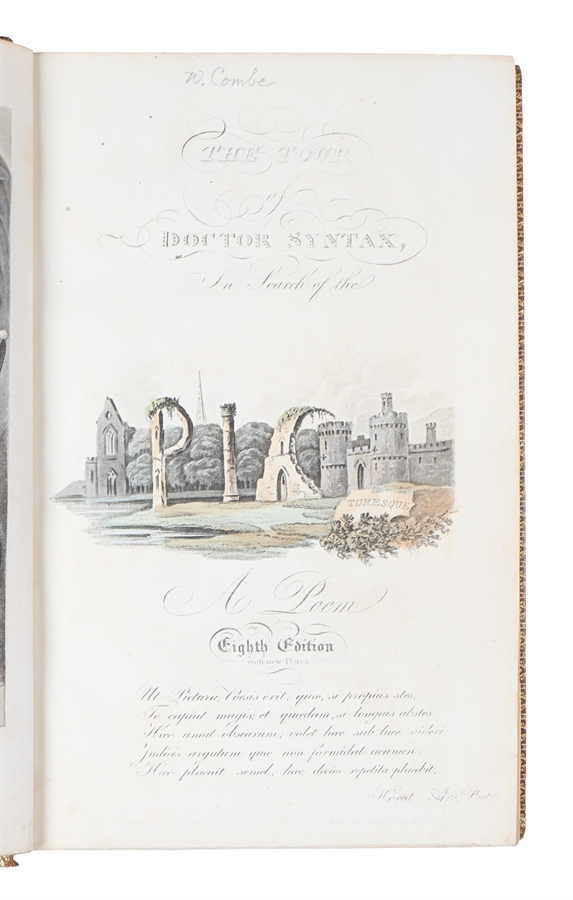 W. Combe
THE TOUR
of
DOCTOR SYNTAX,
In Search of the
PIC
TURESQUE
A Poem
Eighth Edition
with new Plates
Ut Pictura, Poesis erit; quæ, si propius stes,
Te capiat magis; et quædam, si longuis abstes.
Hæc amat obscurum; volet hæc sub luce videri
Judicis argutum quæ non formidat acumen:
Hæc placuit semel, hæc decies repetita placebit.
Horat. Ars. Poet.